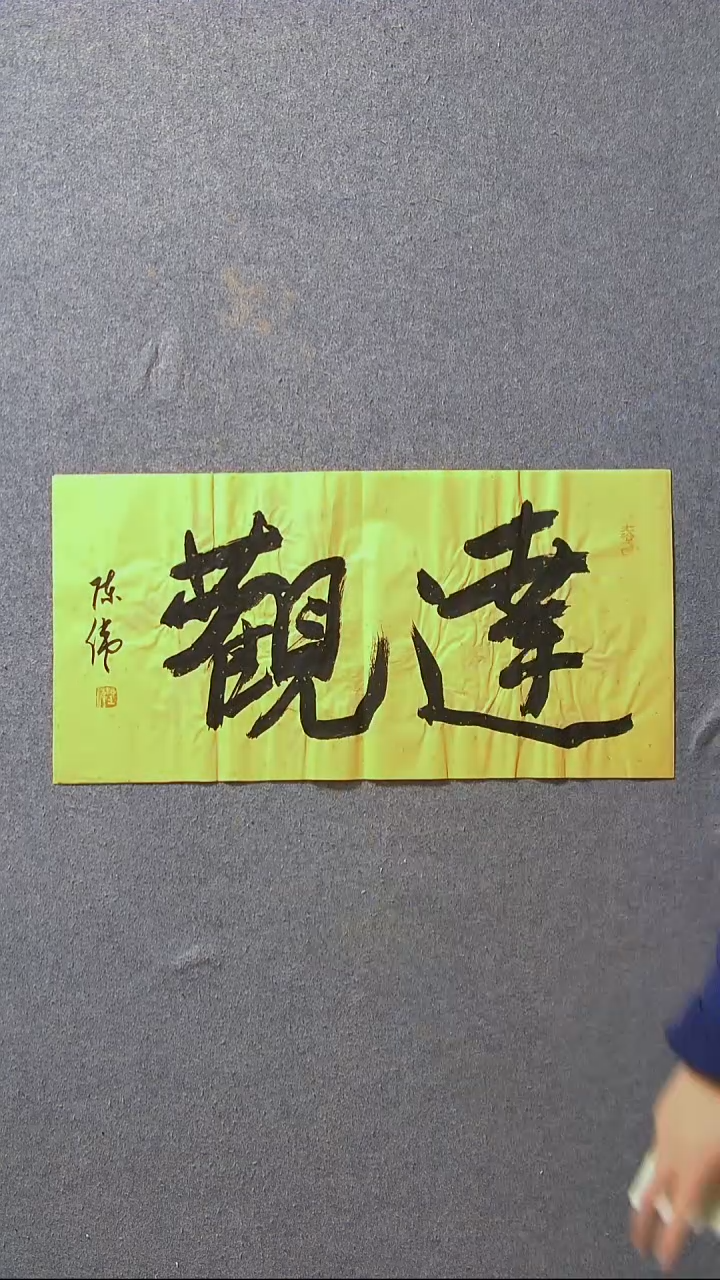 達觀
陈伟